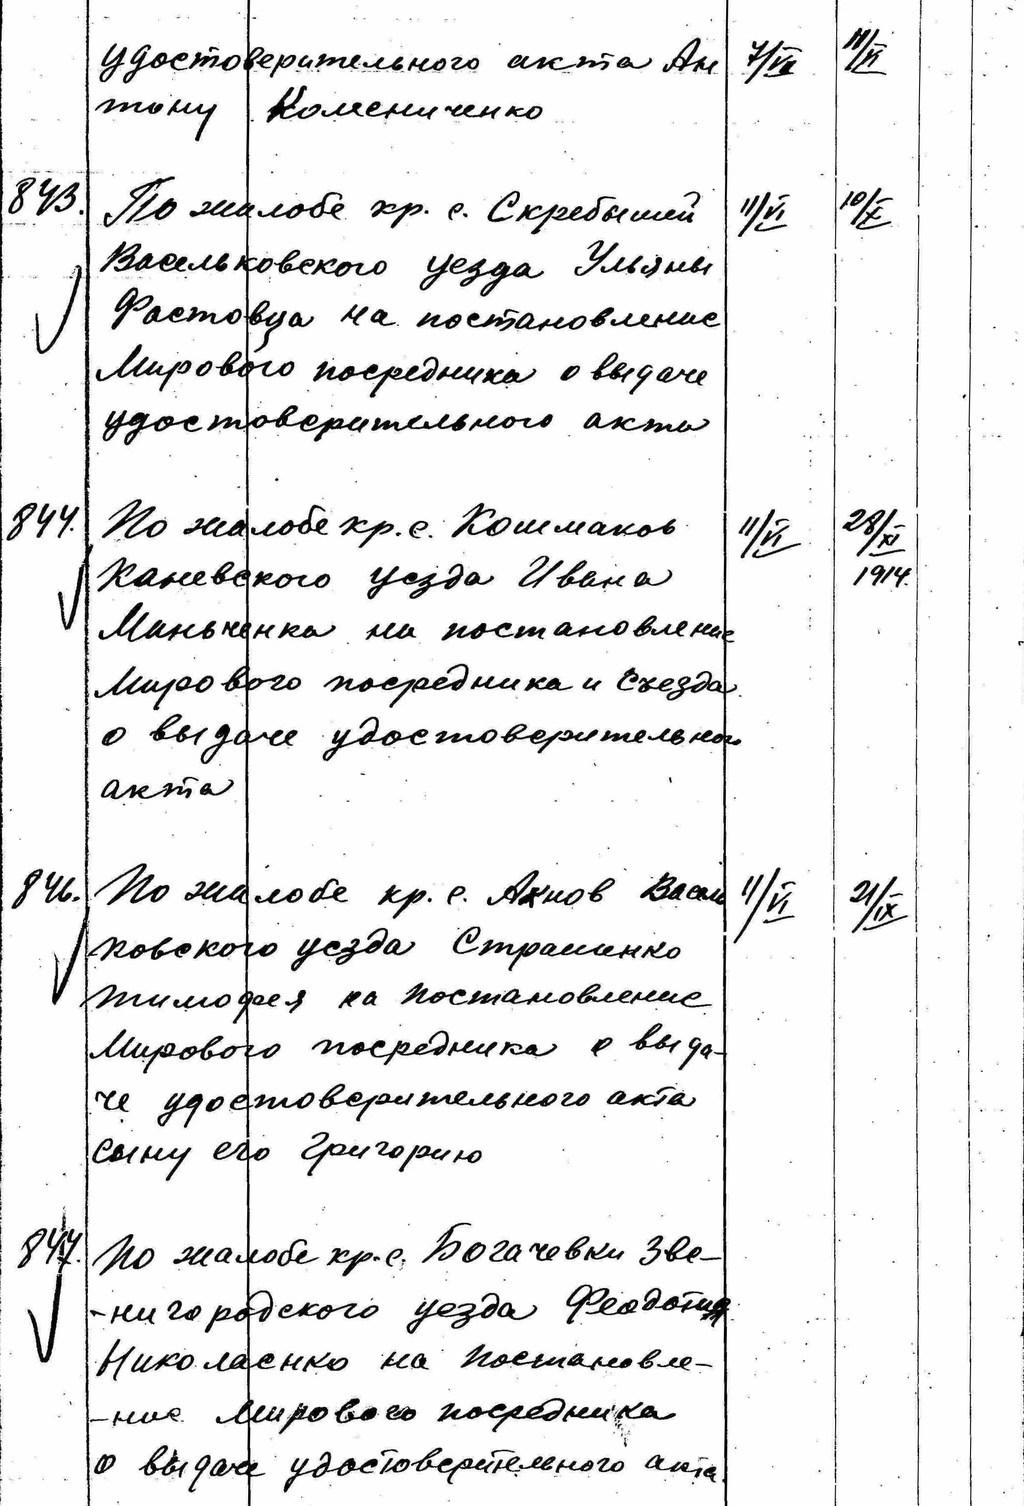 удостоверительного акта Ан 7/VI 11/VI
тону Колесниченко
843. По жалобе кр. с. Скребышей 11/VI 10/X
Васильковского уезда Ульяны
Фастовца на постановление
Мирового посредника о выдаче
удостоверительного акта
844. По жалобе кр. с. Кошмаков 11/VI 28/XI
Каневского уезда Ивана 1914.
Миньченка на постановление
Мирового посредника и Съезда
о выдаче удостоверительного
акта
846. По жалобе кр. с. Василь 11/VI 21/IX
ковского уезда Страшенко
Тимофея на постановление
Мирового посредника о выда-
че удостоверительного акта
сыну его Григорию
847. По жалобе кр. с. Богачевки Зве-
-нигородского уезда
Николаенко на постановле-
-ние Мирового посредника
о выдаче удостоверительного акта.